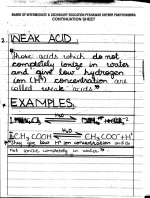 BOARD OF INTERMEDIATE & SECONDARY EDUCATION PESHAWAR KHYBER PAKHTUNKHWA
CONTINUATION SHEET
2. WEAK ACID:
"Those acids which do not
completely ionize in water
and give low hydrogen
ion (H⁺) concentration are
called weak acids."
* EXAMPLES:
1.
2. CH₃COOH ⇌ CH₃COO⁻ + H⁺
They give low H⁺ ion concentration and do
not ionize completely in water.